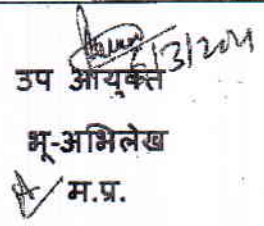 6/3/2021
उप आयुक्त
भू-अभिलेख
म.प्र.